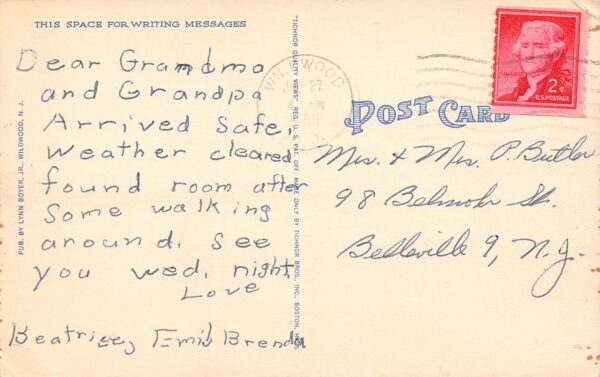 THIS SPACE FOR WRITING MESSAGES
Dear Grandma
and Grandpa
Arrived safe,
weather cleared
found room after
some walking
around. See
you wed. night
Love
Beatrice, Emil Brenda
PUB. BY LYNN BOYER, JR., WILDWOOD, N. J.
"TICHNOR QUALITY VIEWS" REG. U. S. PAT. OFF. MADE ONLY BY TICHNOR BROS., INC., BOSTON, MASS.
WILDWOOD
27
2¢
U.S. POSTAGE
POST CARD
Mr. & Mrs. P. Butler
98 St.
Belleville 9, N.J.